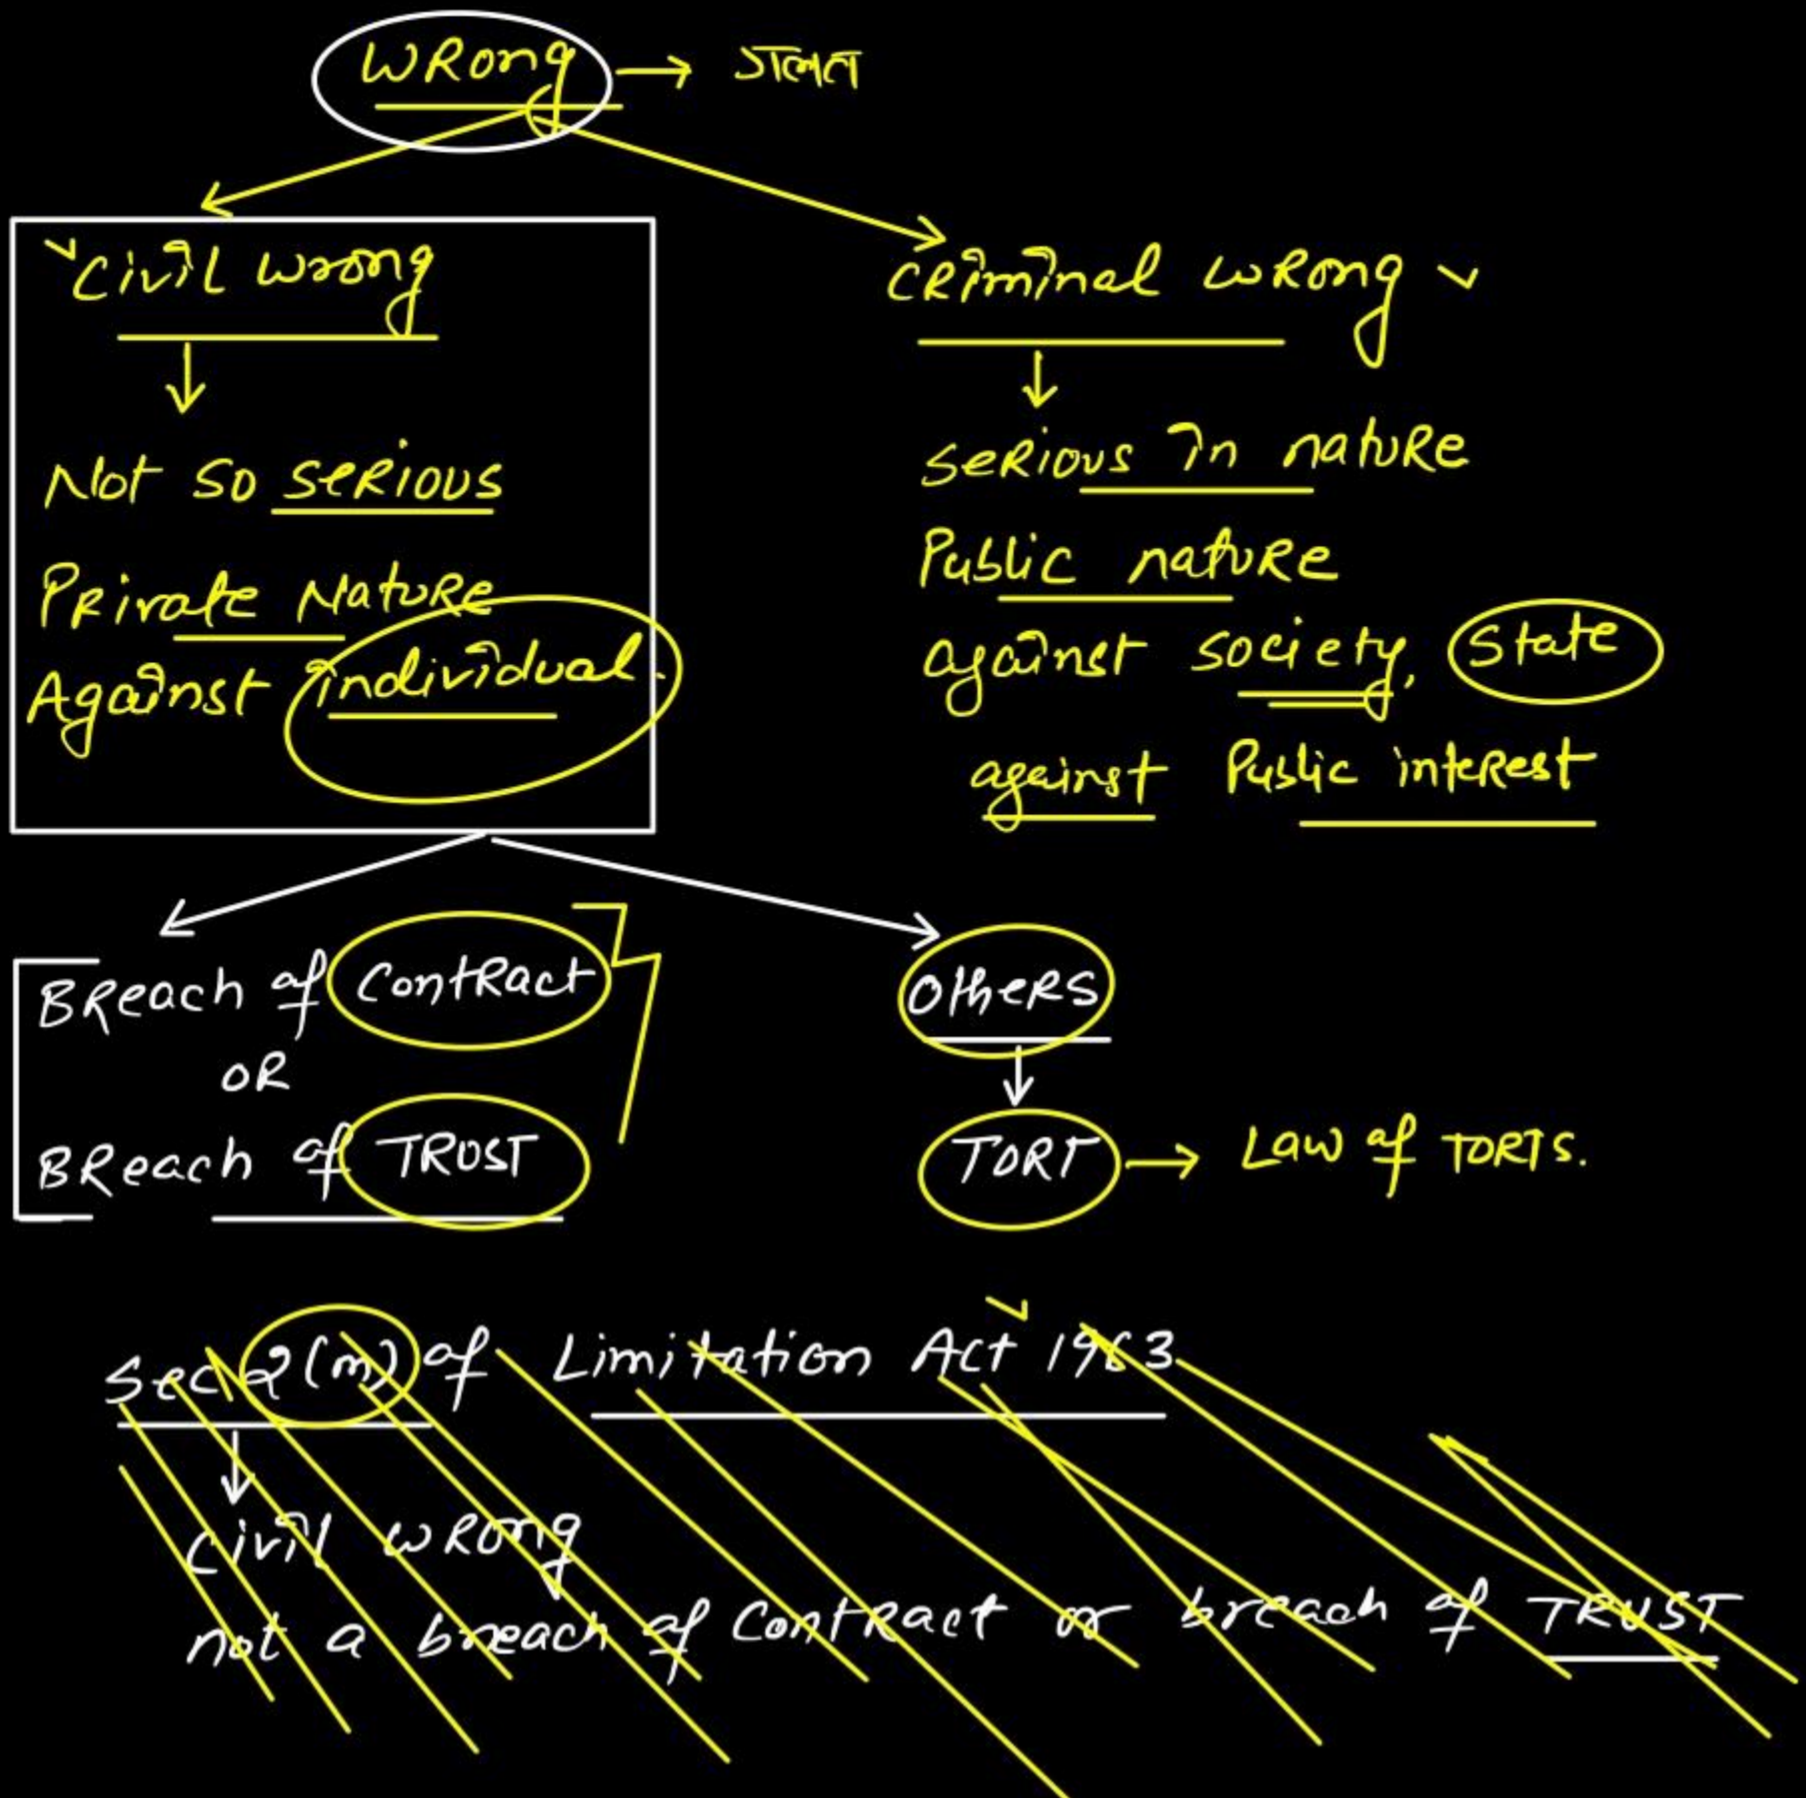 WRong → गलत
Civil wrong
CRiminal wRong
Not so seRious
PRivate NatuRe
Against individual.
seRious in natuRe
Public natuRe
against society, State
against Public inteRest
BReach of ContRact
OR
BReach of TRUST
OtheRs
TORT → Law of TORTS.
Sec 2(m) of Limitation Act 1963
Civil wRong
not a breach of ContRact or breach of TRUST